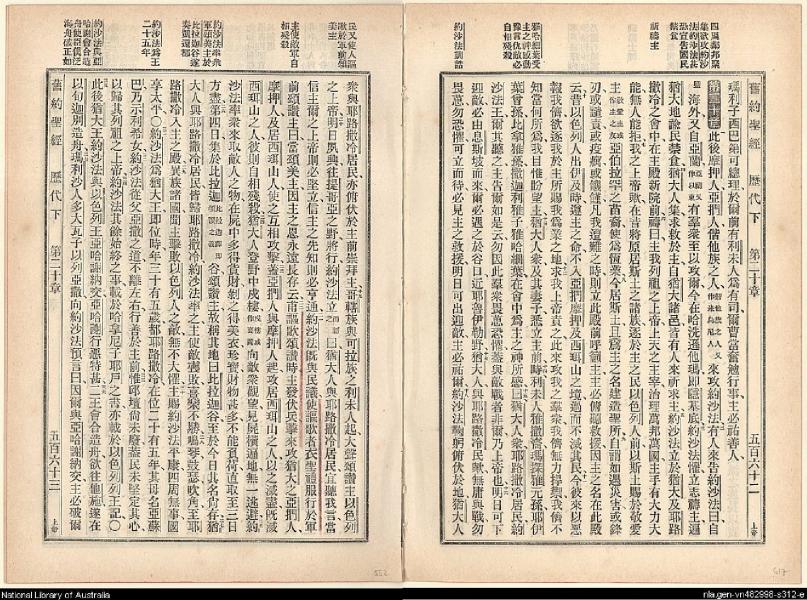 四周鄰邦聚集欲攻約沙法約沙法甚恐宣告國民禁食
祈禱主
雅哈細葉受主之神感動豫言仇敵必自相殘殺
約沙法頌讚
舊約聖經 歷代下 第二十章 五百六十二 上帝
瑪利子西巴第可總理於爾前有利未人爲有司爾曹當奮勉行事主必祐善人
第二十章 此後摩押人亞捫人偕他族之人 來攻約沙法有人來告約沙法曰自
海外又自亞蘭 有羣衆至以攻爾今在哈洗遜他瑪即隱基底約沙法懼立志禱主遍
猶大地諭民禁食猶大人集求救於主自猶大諸邑皆有人來祈求主約沙法立於猶大及耶路
撒冷之會中在主殿新院前禱曰主我列祖之上帝上天之主宰治理萬邦萬國主手有大力大
能無人能拒我之上帝歟在昔將原居斯土之諸族逐於主之民以色列人前以斯土賜於敬愛
主 亞伯拉罕之苗裔使爲恆業今居斯土且爲主之名建造聖所自謂如遇災害或鋒
刃或譴責或疫癘或饑饉凡我遭難之時則立此殿前呼籲主主必俯聽救援因主之名在此殿
云昔以色列人出伊及時遵主之命不入亞捫摩押及西珥山之境過而不滅其民今彼來以惡
報我儕欲逐我於主所賜我爲業之地求我上帝責之此來攻我之羣衆我儕無力捍禦我儕不
知當何所爲我目惟盼望主猶大人衆及其妻子悉立主前時利未人雅撒裔瑪探雅元孫耶伊
葉曾孫比拿雅孫撒迦利雅子雅哈細葉在會中爲主之神所感曰猶大人衆耶路撒冷居民約
沙法王爾其聽之主告爾如是云勿因此羣衆畏葸恐懼蓋與敵戰者非爾乃上帝也明日可下
迎敵必由息斯坡而來爾必遇之於谷口近耶魯伊勒野猶大人與耶路撒冷民歟無庸與戰勿
畏葸勿恐懼可立而待必見主之救援明日可出迎敵主必祐爾約沙法鞠躬俯伏於地猶大人
民又使人謳歌於軍前頌美主
主使敵軍自相殘殺
約沙法率衆軍頌美主於比拉迦谷遂奏凱還都
約沙法爲王二十五年
約沙法與亞哈謝合會造舟他施泛海舟破正如
舊約聖經 歷代下 第二十章 五百六十三 上帝
衆與耶路撒冷居民亦俯伏於主前崇拜主哥轄族與可拉族之利未人起大聲頌讚主以色列
之上帝明日夙興往提哥亞之野將行約沙法立 曰猶大人與耶路撒冷居民宜聽我言當
信主爾之上帝則必堅立信主之先知則必亨通約沙法既與民議使謳歌者衣聖禮服行於軍
前頌讚主曰當頌美主因主之恩永遠長存云甫謳歌頌讚時主發伏兵擊來攻猶大之亞捫人
摩押人及居西珥山人使之互相攻擊蓋亞捫人與摩押人起攻居西珥山之人以之滅盡既滅
西珥山之人彼則自相殘殺猶大人登野中戍樓 向敵衆觀望見屍橫遍地無一逃避約
沙法率衆來取敵人之物在屍中多得貨財剝之得美衣珍寶財物甚多不能負荷直取至三日
方盡第四日集於比拉迦 谷頌讚主故稱其地曰比拉迦谷至於今日其名尚存猶
大人與耶路撒冷居民皆歸耶路撒冷約沙法率之主使敵喪敗喜樂不勝鳴琴鼓瑟吹角至耶
路撒冷入主之殿異族諸國聞主擊敗以色列人之敵無不大懼主賜約沙法平康四周無事國
享太平○約沙法爲猶大王即位時年三十有五歲都耶路撒冷在位二十有五年其母名亞蘇
巴乃示利希女約沙法從父亞撒之道不離左右行善於主前惟邱壇尚未廢蓋民未堅定其心
以歸其列祖之上帝約沙法其餘始終之事載於哈拿尼子耶戶之書亦載於以色列列王記○
此後猶大王約沙法與以色列王亞哈謝納交亞哈謝行惡特甚二王會合造舟欲往他施遂在
以旬迦別造舟瑪利沙人多大瓦子以列亞撒向約沙法預言曰因爾與亞哈謝納交主必破爾
National Library of Australia
nla.gen-vn482998-s312-e